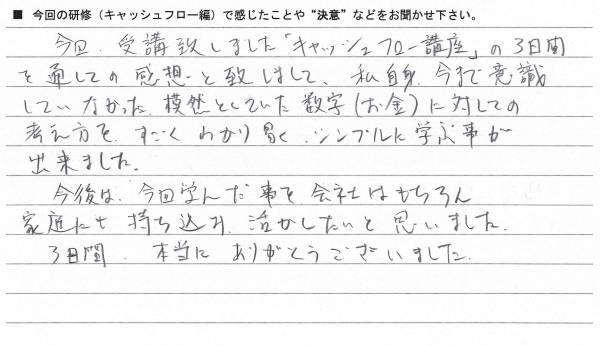 ■ 今回の研修（キャッシュフロー編）で感じたことや“決意”などをお聞かせ下さい。
今回、受講致しました「キャッシュフロー講座」の3日間
を通しての感想と致しまして、私自身、今まで意識
していなかった、模然としていた数字（お金）に対しての
考え方を、すごくわかり易く、シンプルに学ぶ事が
出来ました。
今後は、今回学んだ事を会社はもちろん
家庭にも持ち込み、活かしたいと思いました。
3日間、本当にありがとうございました。